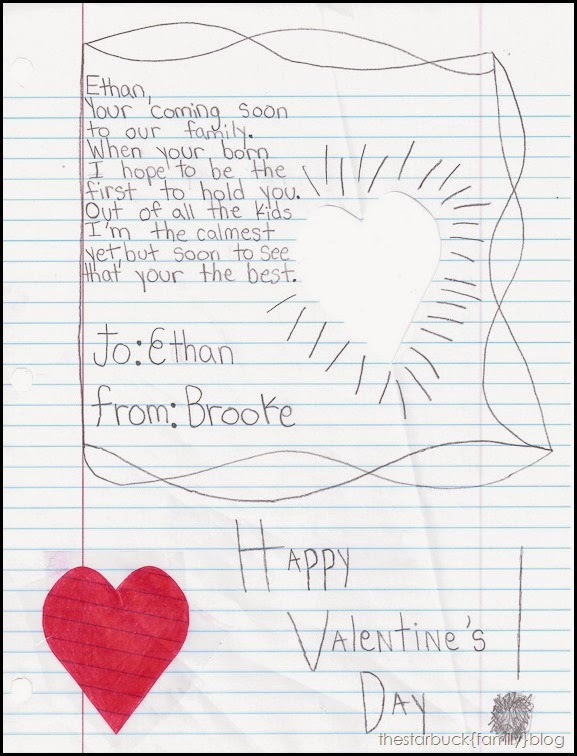 Ethan,
Your coming soon
to our family.
When your born
I hope to be the
first to hold you.
Out of all the kids
I'm the calmest
yet, but soon to see
that your the best.
To: Ethan
from: Brooke
Happy
Valentine's
Day !
thestarbuck{family}blog